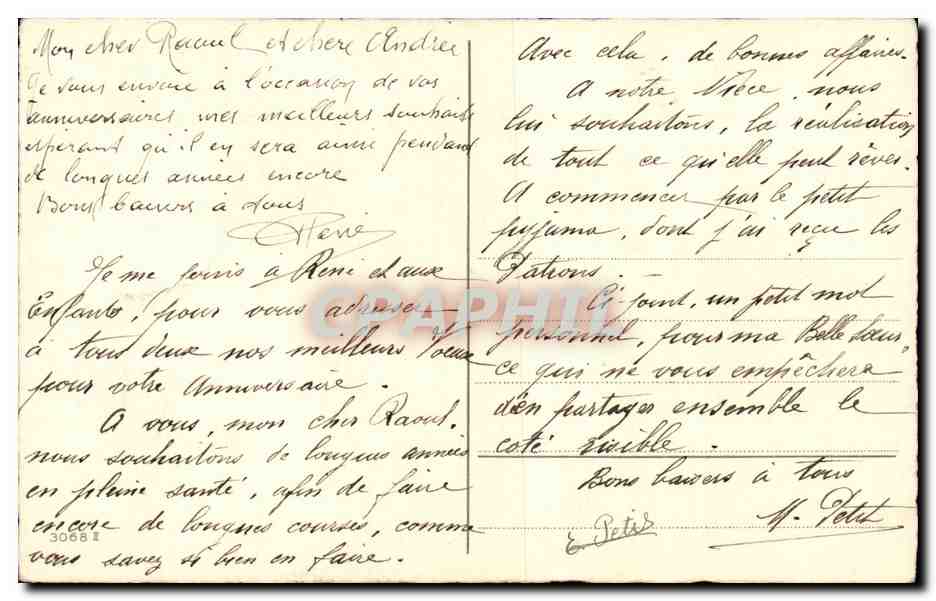 Mon cher Raoul et chère Andrée
Je vous envoie à l'occasion de vos
anniversaires mes meilleurs souhaits
espérant qu'il en sera ainsi pendant
de longues années encore
Bons baisers à tous
René
Je me joins à René et aux
Enfants, pour vous adresser
à tous deux nos meilleurs Voeux
pour votre Anniversaire.
A vous, mon cher Raoul,
nous souhaitons de longues années
en pleine santé, afin de faire
encore de longues courses, comme
3068 II
vous savez si bien en faire.
Avec cela, de bonnes affaires.
A notre Nièce, nous
lui souhaitons, la réalisation
de tout ce qu'elle peut rêver.
A commencer par le petit
pyjama, dont j'ai reçu les
Patrons. –
Ci-joint, un petit mot
personnel, pour ma Belle Sœur,
ce qui ne vous empêchera
d'en partager ensemble le
coté risible.
Bons baisers à tous
M. Petit
E Petit
CPAPHIL